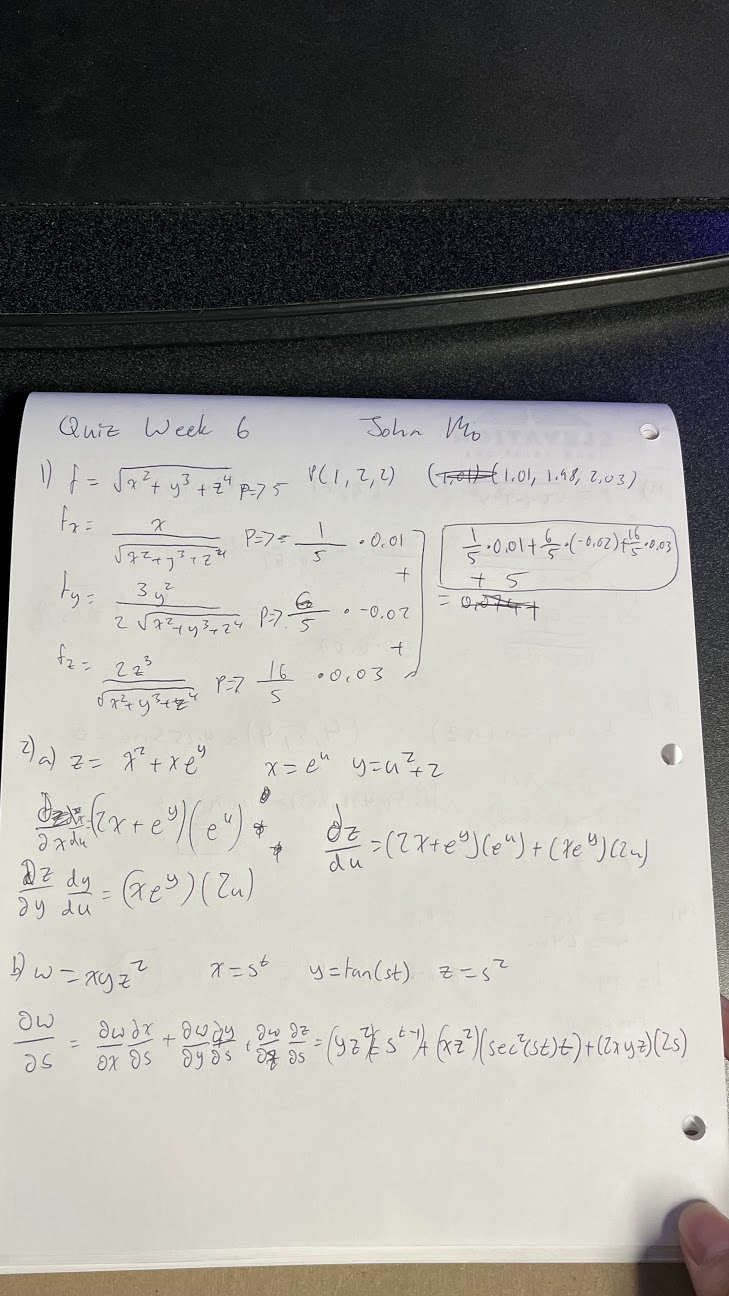 Quiz Week 6 John Mo
1) f = √(x² + y³ + z⁴) P=> 5 P(1, 2, 2) (1.01, 1.98, 2.03)
fx = x / √(x² + y³ + z⁴) P=> = 1/5 · 0.01
+
fy = 3y² / 2√(x² + y³ + z⁴) P=> 6/5 · -0.02
+
fz = 2z³ / √(x² + y³ + z⁴) P=> 16/5 · 0.03
1/5 · 0.01 + 6/5 · (-0.02) + 16/5 · 0.03
+ 5
=
2) a) z = x² + xe^y x = e^u y = u² + 2
∂z/∂x dx/du = (2x + e^y)(e^u)
∂z/∂y dy/du = (xe^y)(2u)
dz/du = (2x + e^y)(e^u) + (xe^y)(2u)
b) w = xyz² x = s^t y = tan(st) z = s²
∂w/∂s = ∂w/∂x ∂x/∂s + ∂w/∂y ∂y/∂s + ∂w/∂z ∂z/∂s = (yz²)(t s^(t-1)) + (xz²)(sec²(st)t) + (2xyz)(2s)